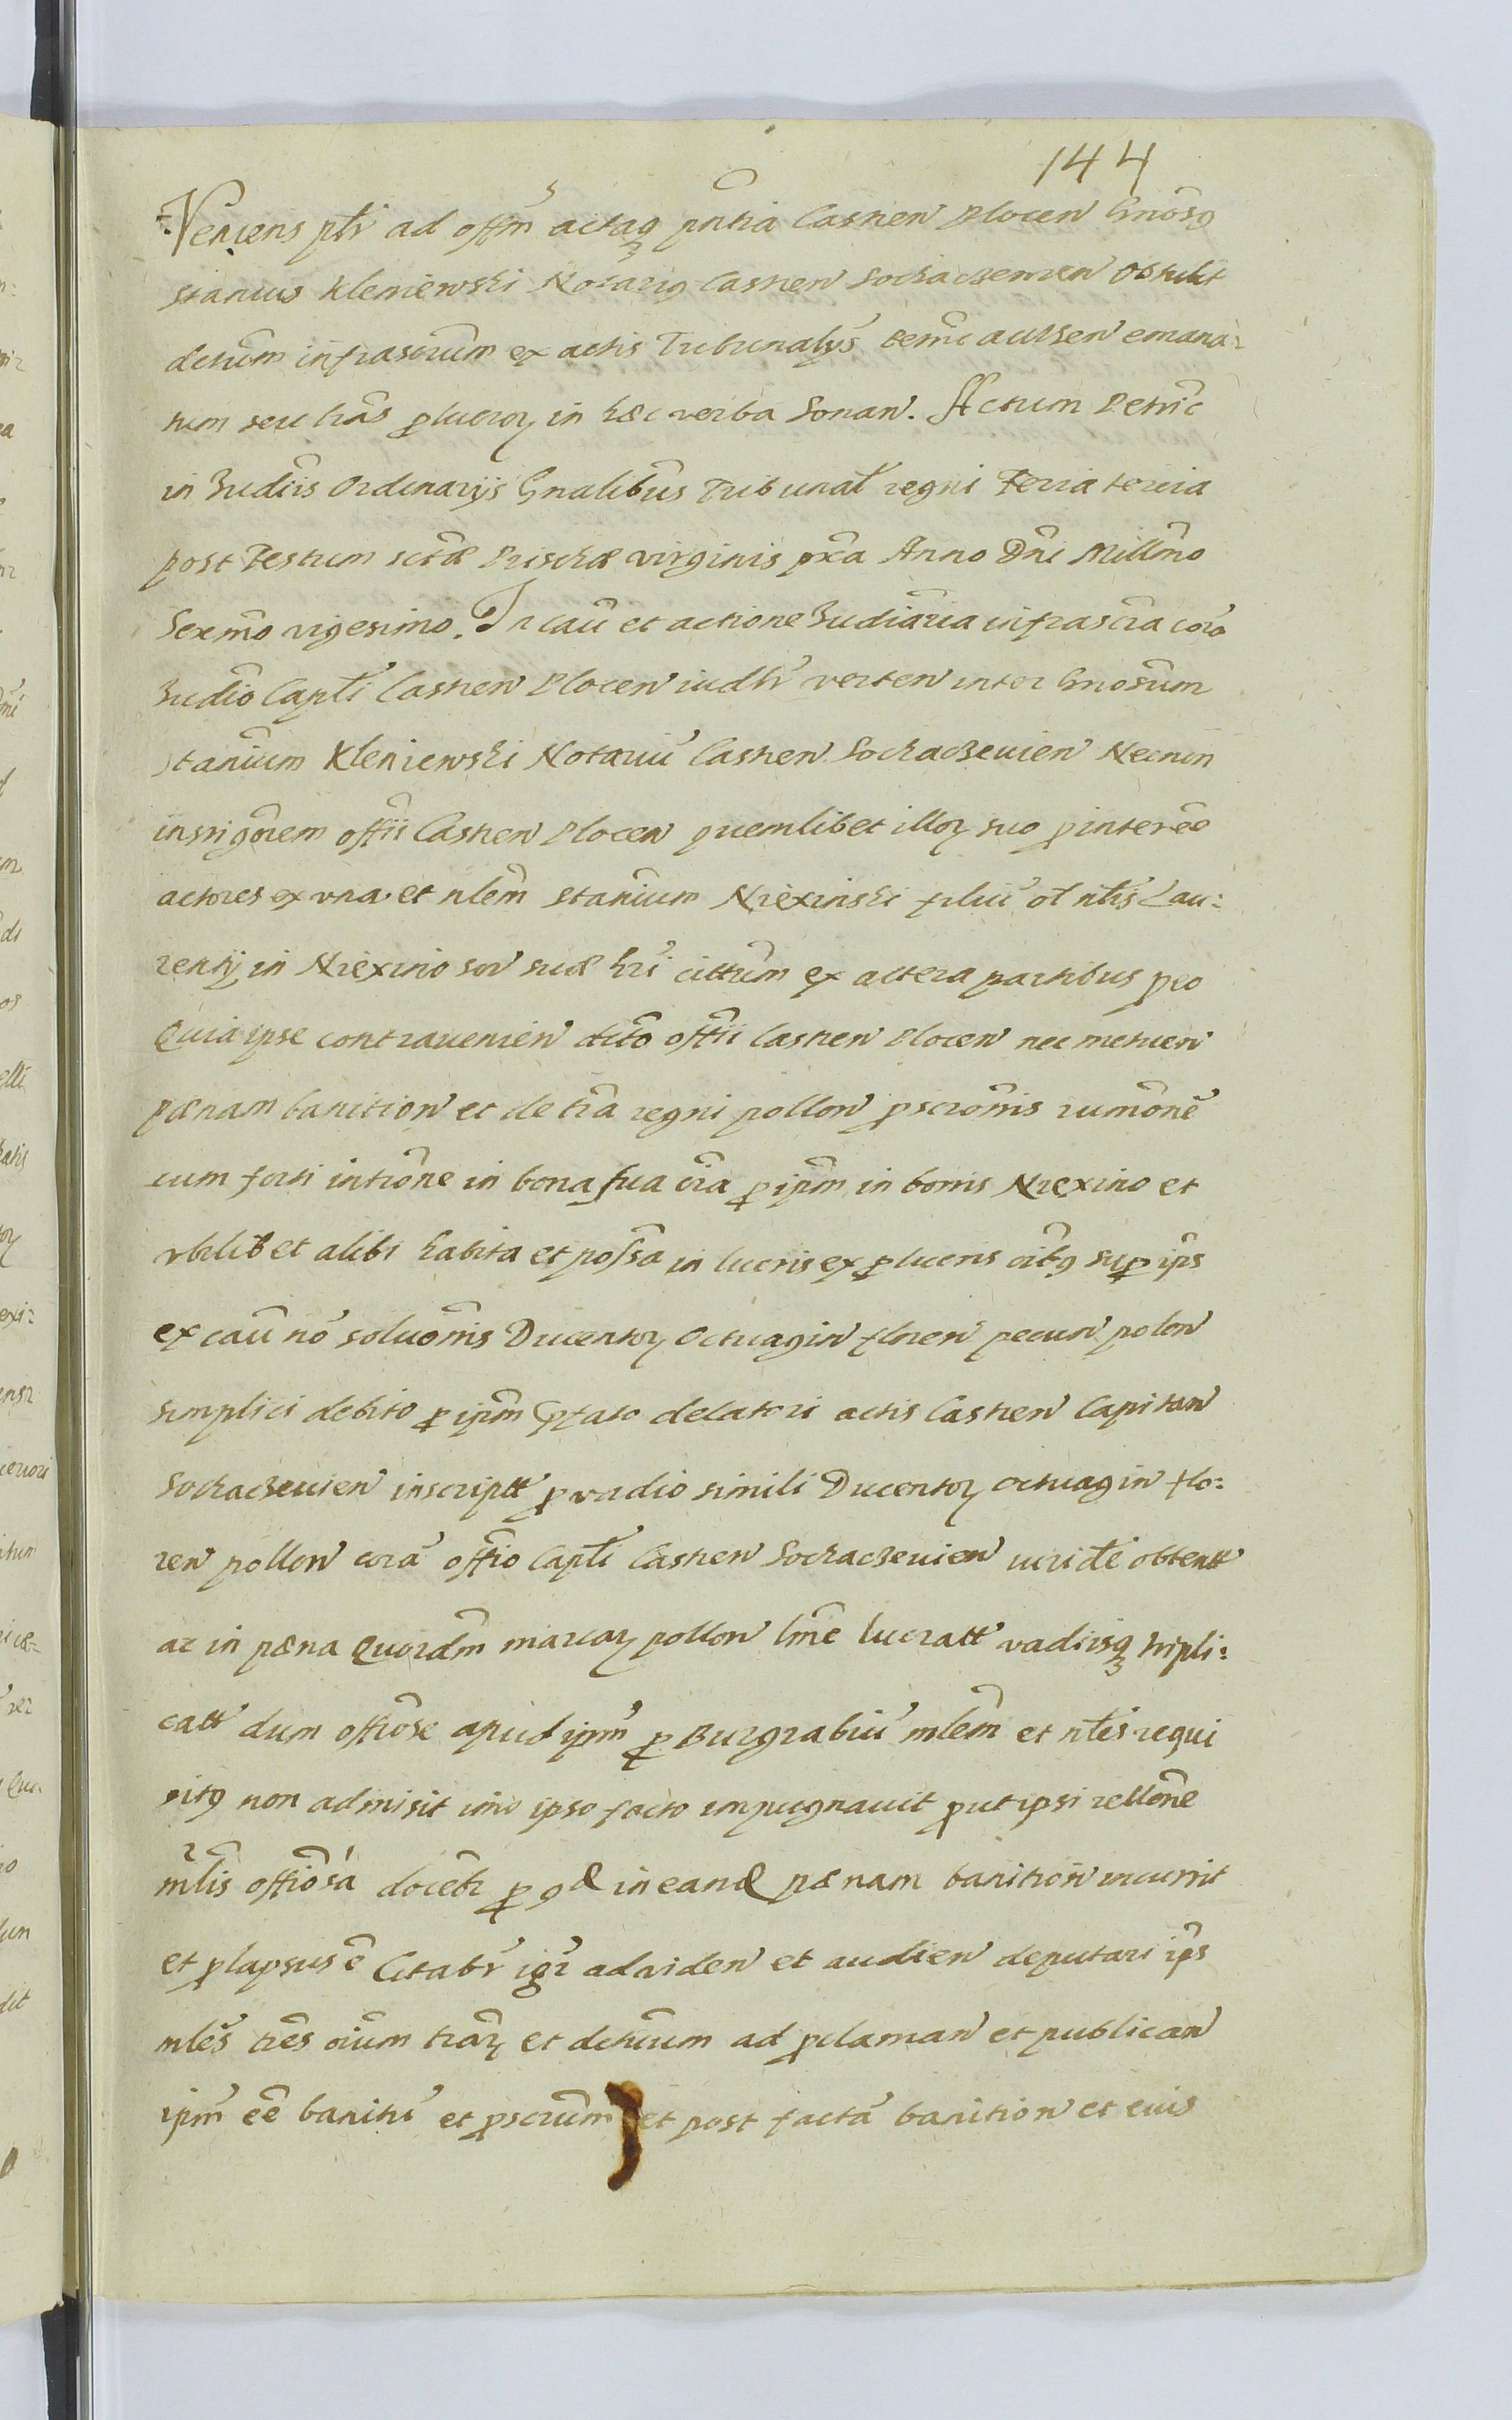 144
Veniens ptr ad offm actaq pntia Castren Plocen Gnosq
Stanius Kleniewski Notariq Castren Sochaczewien Obtulit
dctum infrascrum ex actis Tribunalys Petric authen emana:
tum seu lras plucror in hæc verba sonan. Actum Petric
in Iudiis Ordinarijs Gnalibus Tribunal regni Feria tercia
post Festum sctæ Priscæ virginis pxa Anno Dni Millmo
Sexmo vigesimo. In cau et actione Iudiaria infrascra cora
Iudio Captli Castren Plocen iudlr verten inter Gnosum
Stanium Kleniewski Notariu Castren Sochaczeuien Necnon
instigorem offii Castren Plocen quemlibet illor suo p interee
actores ex vna et nlem Stanium Niexinski filiu ol nlis Lau:
rentij in Niexino sor suæ hri cittum ex altera partibus peo
Quia ipse contrauenien dcto offii Castren Plocen nec metuen
pænam banition et de tra regni pollon pscronis rumone
cum forti introne in bona sua oia p ipm in bonis Niexino et
vbilibet alibi habita et possa in lucris ex plucris oibq sup ips
ex cau no soluonis Ducentor Octuagin floren pecun polon
simplici debito p ipm delatori actis Castren Capitan
Sochaczeuien inscriptt p vadio simili Ducentor octuagin flo:
ren pollon cora offio Captli Castren Sochaczeuien obtentt
ac in pæna Quordm marcar pollon lucratt vadiisq tripli:
catt dum offiose apud ipm p Burgrabiu mlem et nles requi
sitq non admisit imo ipso facto impugnauit prout ipsi rellone
mlis offiosa docebr p qd in eand pænam banition incurrit
et plapsus e Citabr igr ad viden et audien deputari ips
mles tres oium trar et dctum ad pclaman et publican
ipm ee banitu et pscrum et post facta banition et eius